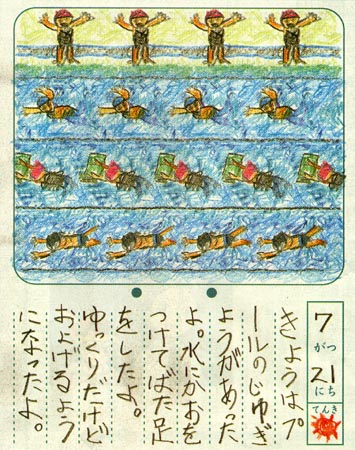 7
がつ
21
にち
てんき
きょうはプ
ールのじゅぎ
ょうがあった
よ。水にかおを
つけてばた足
をしたよ。
ゆっくりだけど
およげるよう
になったよ。